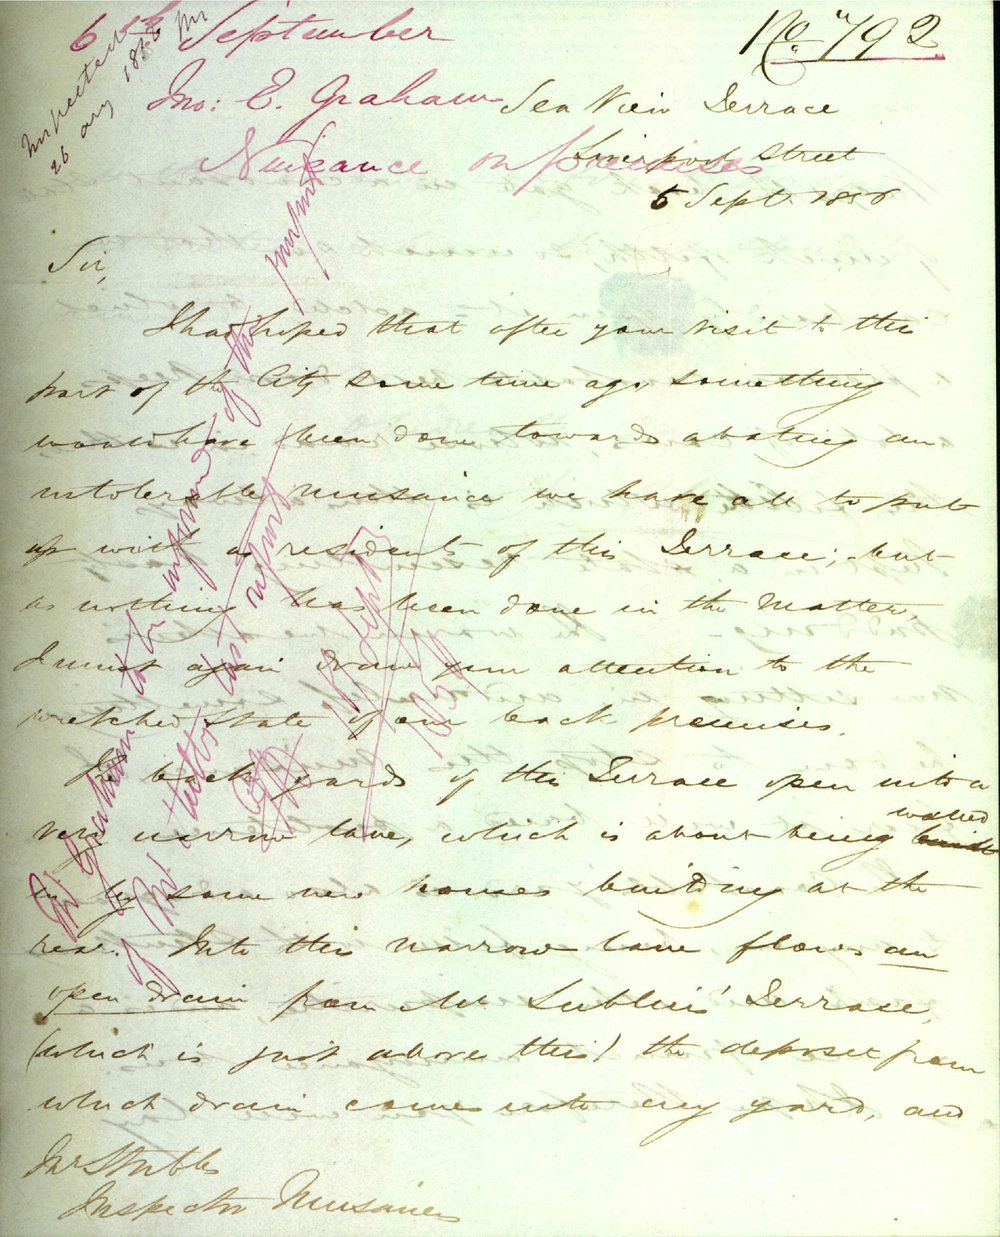 6th September
No. 792
Inspected
26 Aug 1856
Jno: E. Graham
Nuisance on premises
Sea View Terrace
Liverpool Street
5 Sept. 1856
Sir,
I had hoped that after your visit to this
part of the City some time ago, something
would have been done towards abating an
intolerable nuisance we have all to put
up with as residents of this Terrace; but
as nothing has been done in the matter,
I must again draw your attention to the
wretched state of our back premises.
The back yards of this Terrace open into a
very narrow lane, which is about being walled
in by some new houses building at the
rear. Into this narrow lane flows an
open drain from Mr. Lublin's Terrace,
(which is just above this) the deposit from
which drain comes into my yard, and
Mr Stubbs
Inspector Nuisances
Mr Graham to be informed of the purport
of Mr Stubbs' last report
18 Septr
1856